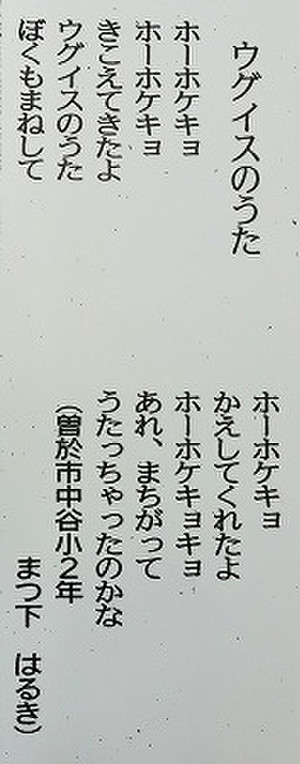 ウグイスのうた
ホーホケキョ
ホーホケキョ
きこえてきたよ
ウグイスのうた
ぼくもまねして
ホーホケキョ
かえしてくれたよ
ホーホケキョキョ
あれ、まちがって
うたっちゃったのかな
(曽於市中谷小2年
まつ下 はるき)